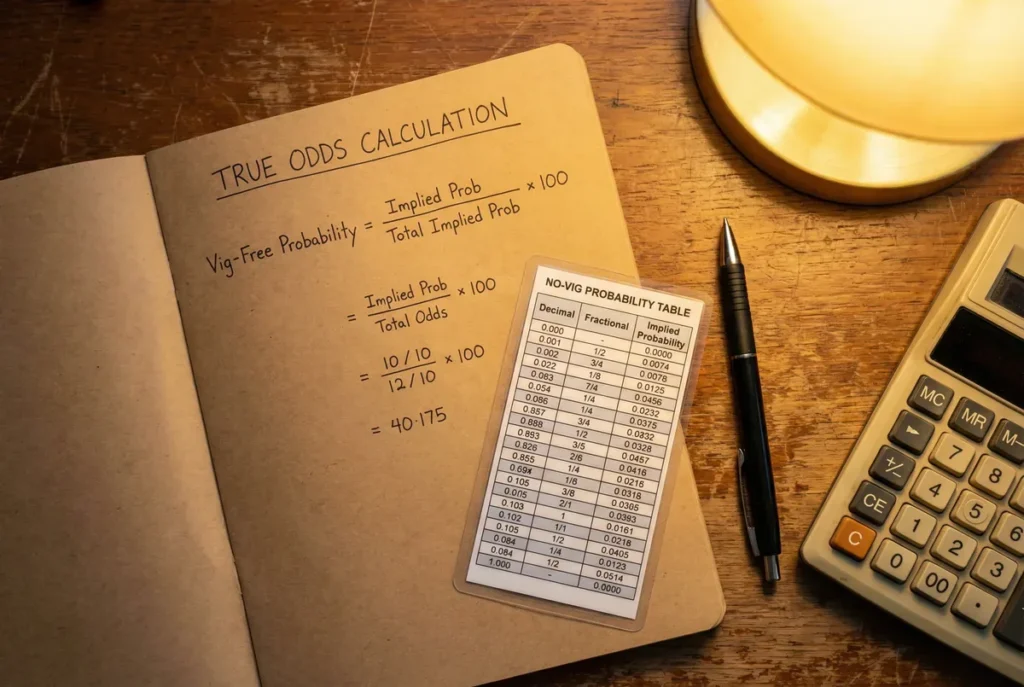 TRUE ODDS CALCULATION
Vig-Free Probability = Implied Prob / Total Implied Prob × 100
= Implied Prob / Total Odds × 100
= 10 / 10 / 12 / 10 × 100
= 40·175
NO-VIG PROBABILITY TABLE
Decimal Fractional Implied Probability
0.000 - 0.0000
0.001 1/2 0.0074
0.002 3/4 0.0078
0.022 1/8 0.0125
0.083 7/4 0.0456
0.054 1/4 0.0232
0.086 1/4 0.0375
0.857 3/4 0.0832
0.888 1/2 0.0328
0.883 3/5 0.0457
0.826 2/6 0.0416
0.855 1/4 0.0216
1/6 0.0318
0.105 3/8 0.0305
0.005 2/1 0.0393
0.103 1 0.0161
0.102 1/1 0.0218
0.105 1/2 0.0405
0.084 1/4 0.0123
0.084 1/2 0.0514
1.000 - 0.0000
MC MR M-
7 8
+/- 4 5
CE 1 2 3
C 0 00 ·